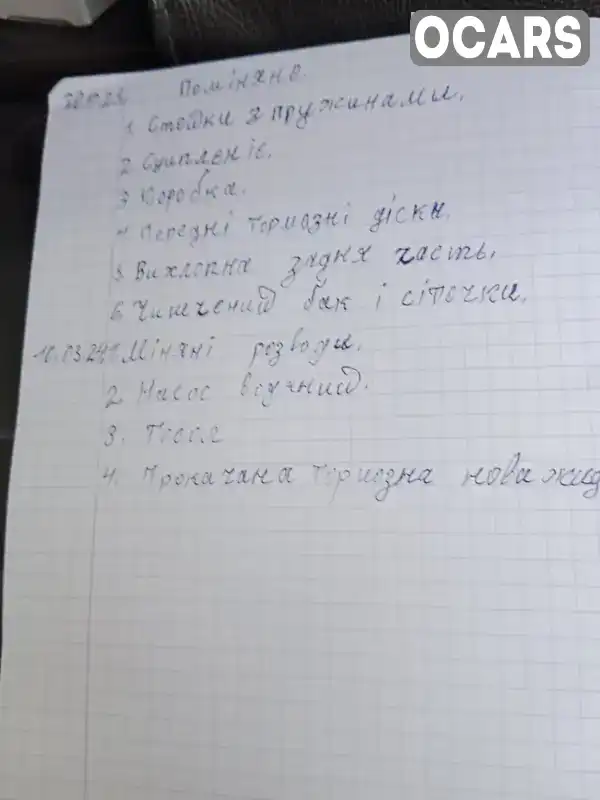 OCARS
Поміняно.
1 Стойки з пружинами.
2 Сципленіє.
3 Коробка.
4 Передні тормозні діски.
5 Вихлопна задня часть.
6 Чишчений бак і сіточки.
10.03.24 1 Міняні розводи.
2 Насос водяний.
3. Тосол
4. Прокачана тормозна нова жид